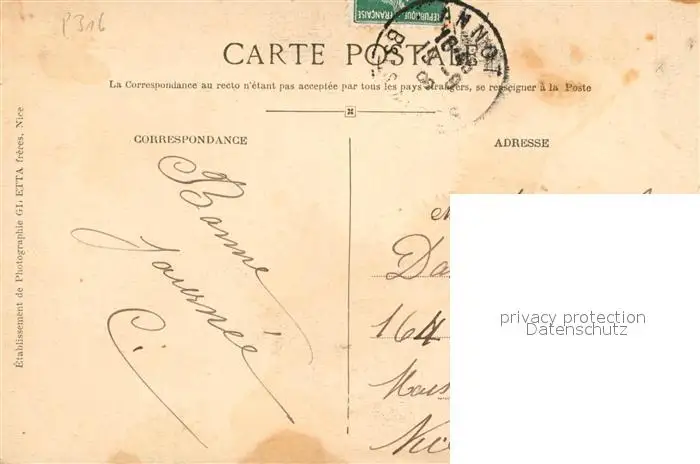 P316
RÉPUBLIQUE FRANÇAISE
ANNOT
BSES
CARTE POSTALE
La Correspondance au recto n'étant pas acceptée par tous les pays étrangers, se renseigner à la Poste
CORRESPONDANCE
Bonne
journée
C.
Établissement de Photographie GILETTA frères, Nice
ADRESSE
Da
164
Nice
privacy protection
Datenschutz